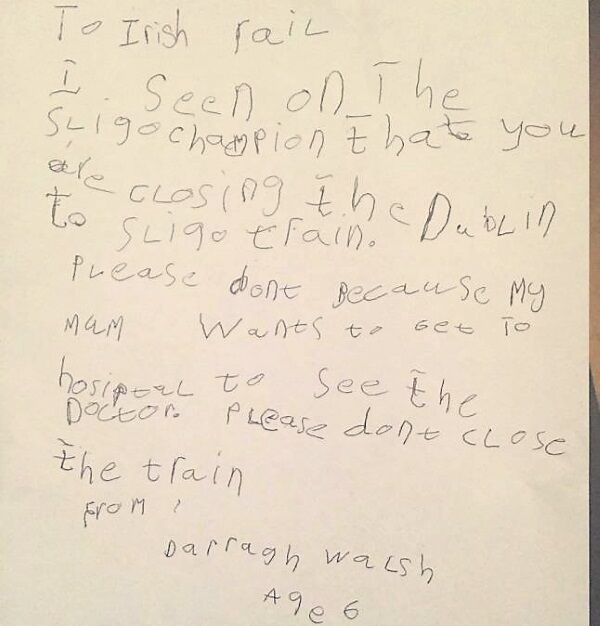 To Irish rail
I seen on The
Sligo champion that you
are closing the Dublin
to Sligo train.
Please dont because my
mam wants to get to
hosiptal to see the
Doctor. Please dont close
the train
from
Darragh Walsh
Age 6